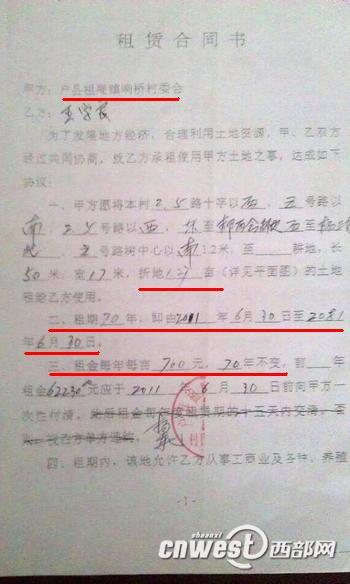 租赁合同书
甲方：户县祖庵镇响桥村委会
乙方：
为了发展地方经济，合理利用土地资源，甲、乙双方
经过共同协商，就乙方承租使用甲方土地之事，达成如下
协议：
一、甲方愿将本村2.5路十字以西，五号路以
南，25号路以西，东至
号路树中心以南1.2米，至 耕地，长
50米，宽17米，折地1.27亩（详见平面图）的土地
租给乙方使用。
二、租期70年，即由2011年6月30日至2081
年6月30日。
三、租金每年每亩700元，70年不变，前 年
租金62230元应于2011年6月30日前向甲方一
次性付清。此后租金每年度租赁期的十五天内交清，否
则，视乙方单方违约。
四、租期内，该地允许乙方从事工商业及各种、养殖
-1-
shaanxi
cnwest西部网